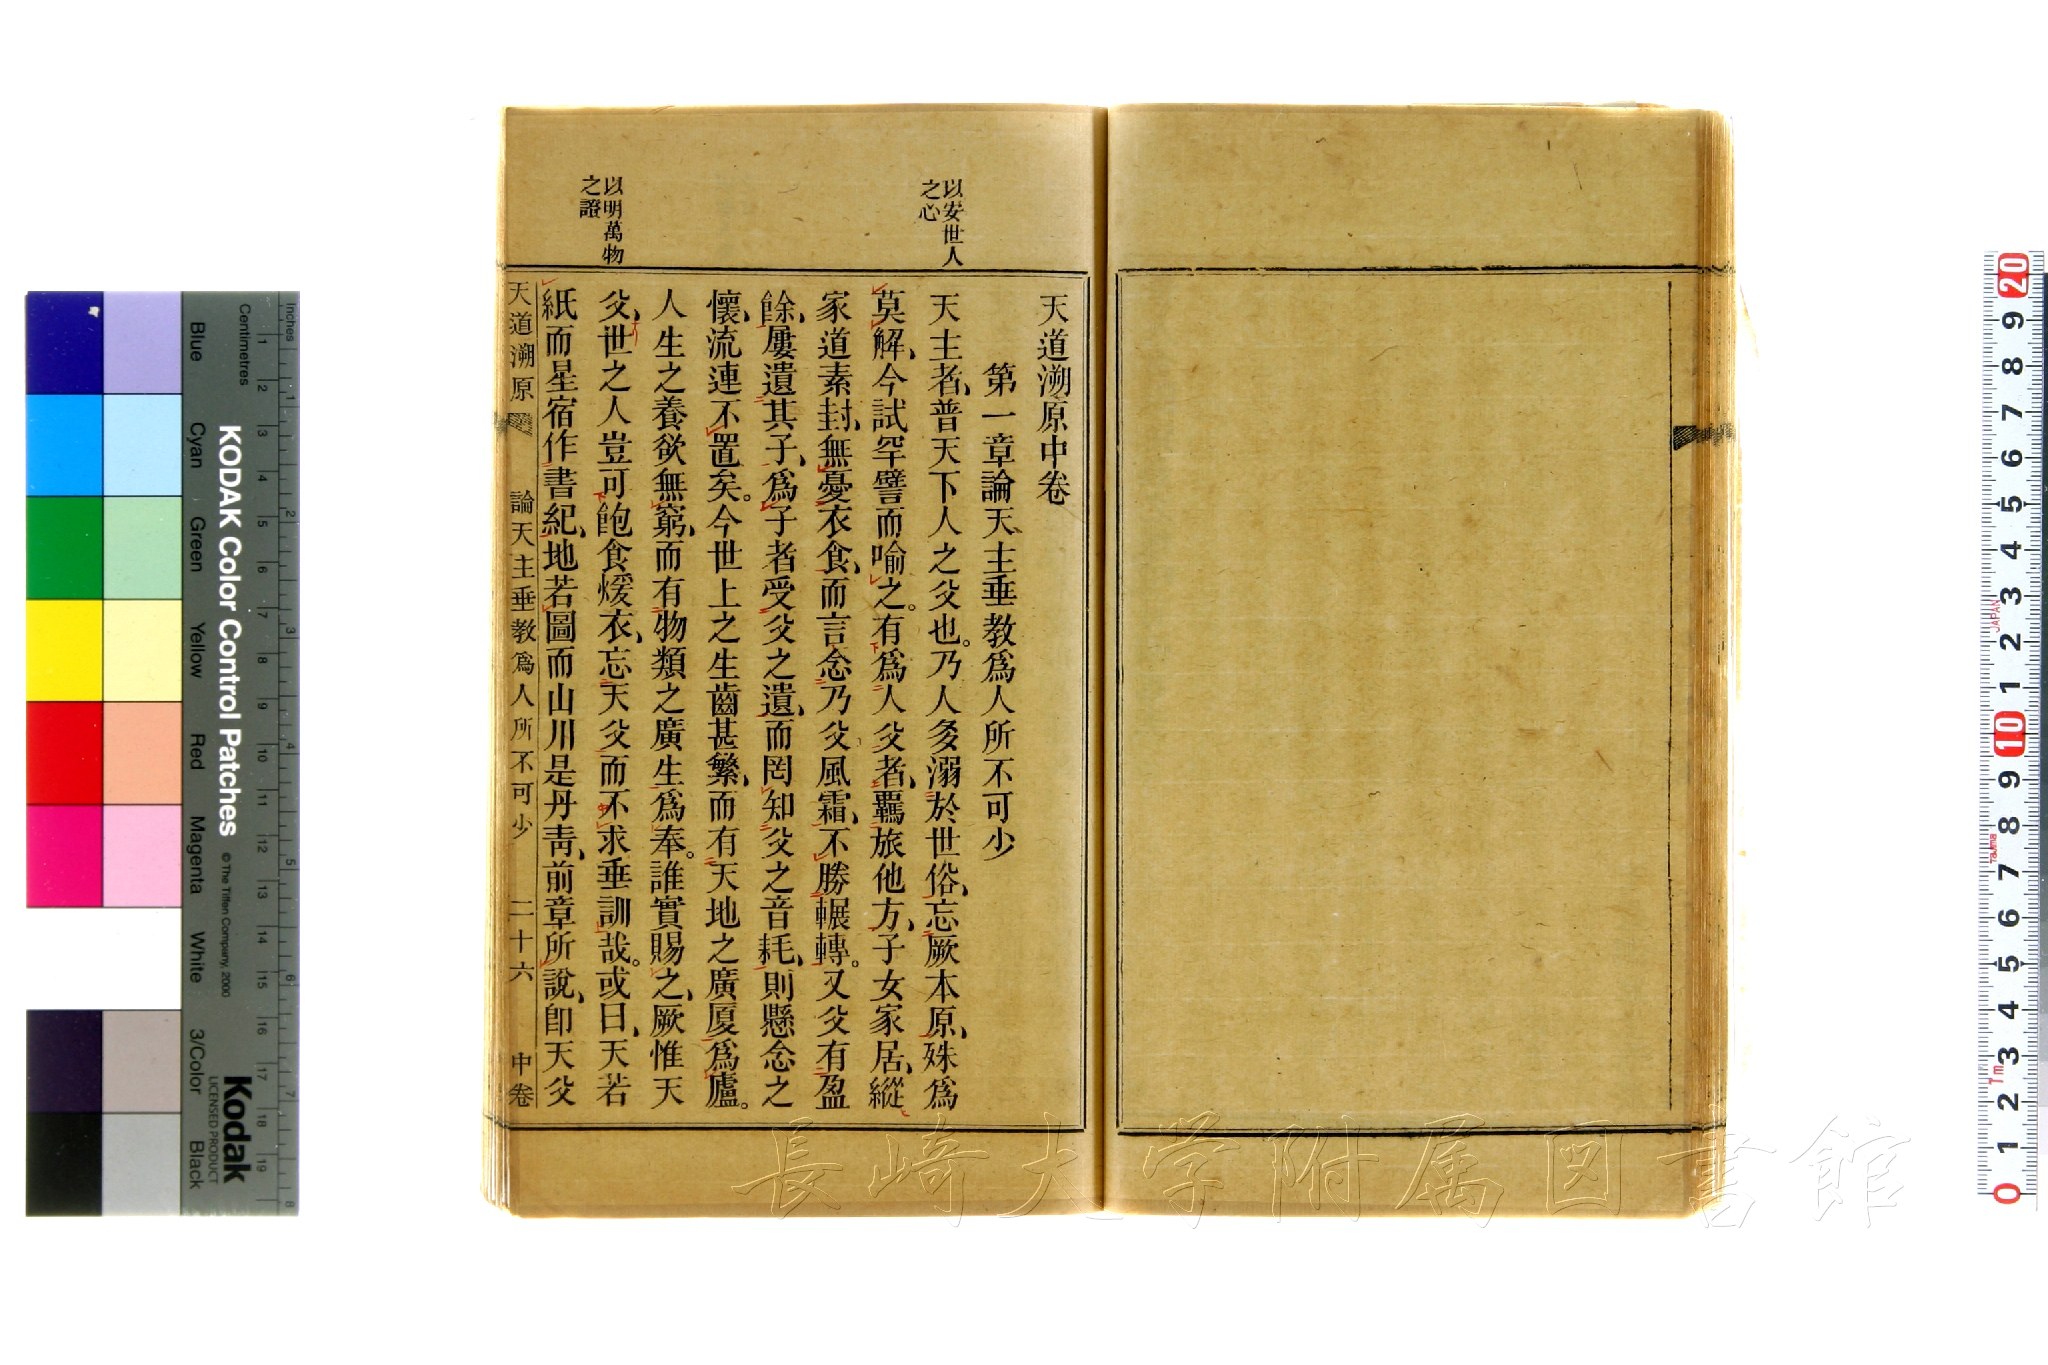 天道溯原中卷
第一章論天主垂教爲人所不可少
以安世人
之心
天主者、普天下人之父也。乃人多溺於世俗、忘厥本原、殊爲
莫解、今試罕譬而喻之。有爲人父者、羈旅他方、子女家居、縱
家道素封、無憂衣食、而言念乃父風霜、不勝輾轉。又父有盈
餘、屢遺其子、爲子者受父之遺、而罔知父之音耗、則懸念之
懷、流連不置矣。今世上之生齒甚繁、而有天地之廣厦爲廬。
人生之養欲無窮、而有物類之廣生爲奉。誰實賜之、厥惟天
以明萬物
之證
父、世之人豈可飽食煖衣、忘天父而不求垂訓哉。或曰、天若
紙而星宿作書紀、地若圖而山川是丹靑、前章所說、卽天父
天道溯原
論天主垂教爲人所不可少
二十六
中卷
長崎大学附属図書館
KODAK Color Control Patches
© The Tiffen Company, 2000
Kodak
LICENSED PRODUCT
Inches
Centimetres
Blue
Cyan
Green
Yellow
Red
Magenta
White
3/Color
Black
1 2 3 4 5 6 7 8 9 10 11 12 13 14 15 16 17 18 19
1 2 3 4 5 6 7 8
20 9 8 7 6 5 4 3 2 1 10 9 8 7 6 5 4 3 2 1 0
JAPAN
Tajima
7m